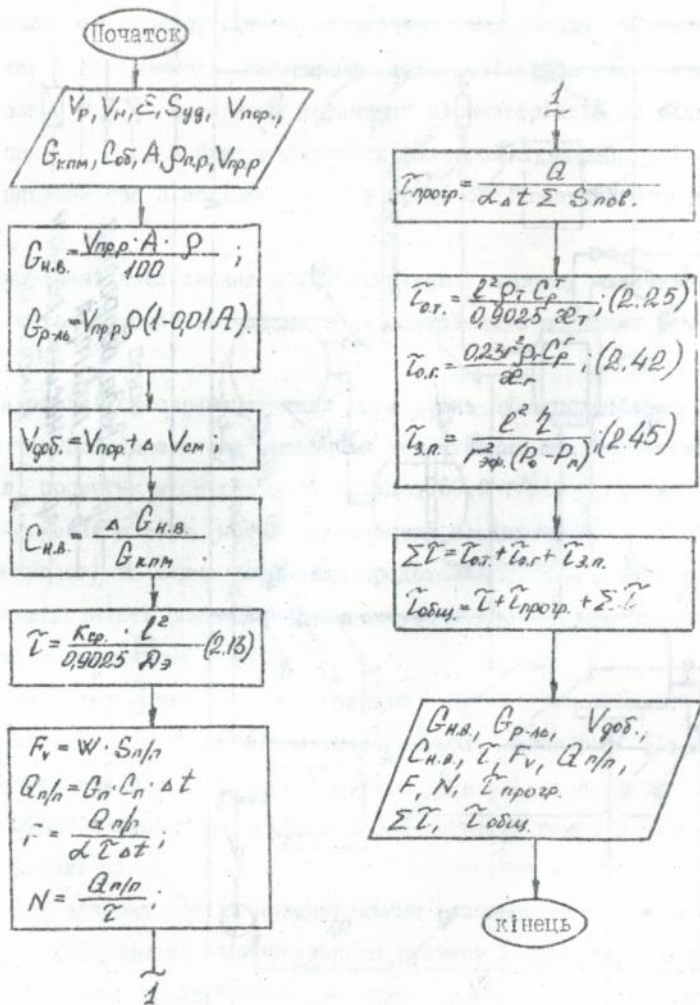 Початок
Vр, Vн, Ɛ, Sуд, Vпор.,
Gкпм, Cоб, A, ρп.р, Vпр.р
Gн.в. = Vпр.р · A · ρ / 100 ;
Gр-ль = Vпр.р ρ(1-0,01A)
Vдоб. = Vпор + Δ Vсм ;
Cн.в. = Δ Gн.в. / Gкпм
τ = Kср. · ℓ² / 0,9025 Dэ (2.13)
Fv = W · Sп/п
Qп/п = Gп · Cп · Δt
F = Qп/п / α τ Δt ;
N = Qп/п / τ ;
1
1
τпрогр. = Q / α Δt Σ Sпов.
τо.т. = ℓ² ρт Cрᵀ / 0,9025 æт ; (2.25)
τо.г. = 0,23r² ρг Cрᴦ / æг ; (2.42)
τз.п. = ℓ² η / r²эф. (Pо - Pп) ; (2.45)
Στ = τо.т. + τо.г + τз.п.
τобщ. = τ + τпрогр. + Στ
Gн.в., Gр-ль, Vдоб.,
Cн.в., τ, Fv, Qп/п,
F, N, τпрогр.
Στ, τобщ.
кінець